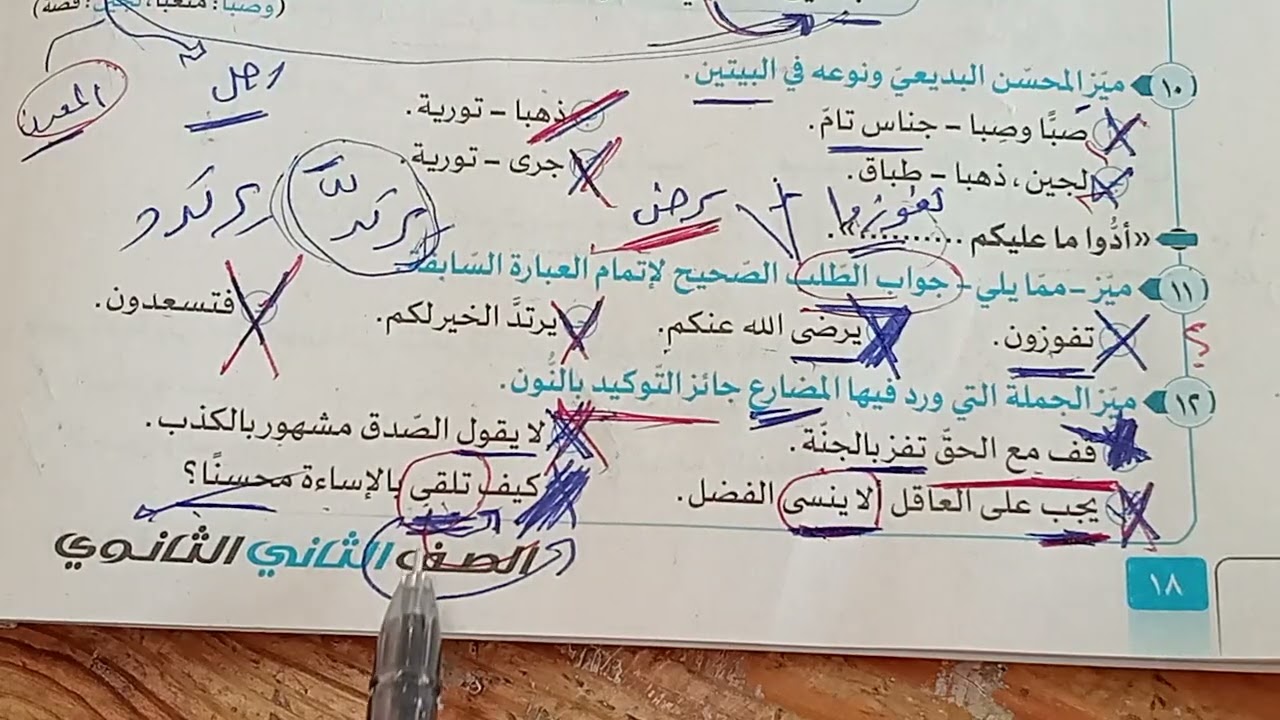 (وصبا: متعبا، لجين: فضة)
١٠ ميّز المحسّن البديعيّ ونوعه في البيتين.
صَبًّا وصِبا – جناس تامّ. ذهبا – تورية.
لجين، ذهبا – طباق. جرى – تورية.
«أدُّوا ما عليكم ............».
١١ ميّز – ممّا يلي – جواب الطّلب الصّحيح لإتمام العبارة السّابقة.
تفوزون. يرضى الله عنكم. يرتدَّ الخير لكم. فتسعدون.
١٢ ميّز الجملة التي ورد فيها المضارع جائز التّوكيد بالنُّون.
قف مع الحقّ تفز بالجنّة. لا يقول الصّدق مشهور بالكذب.
يجب على العاقل لا ينسى الفضل. كيف تلقى بالإساءة محسنًا؟
الصف الثاني الثانوي
١٨